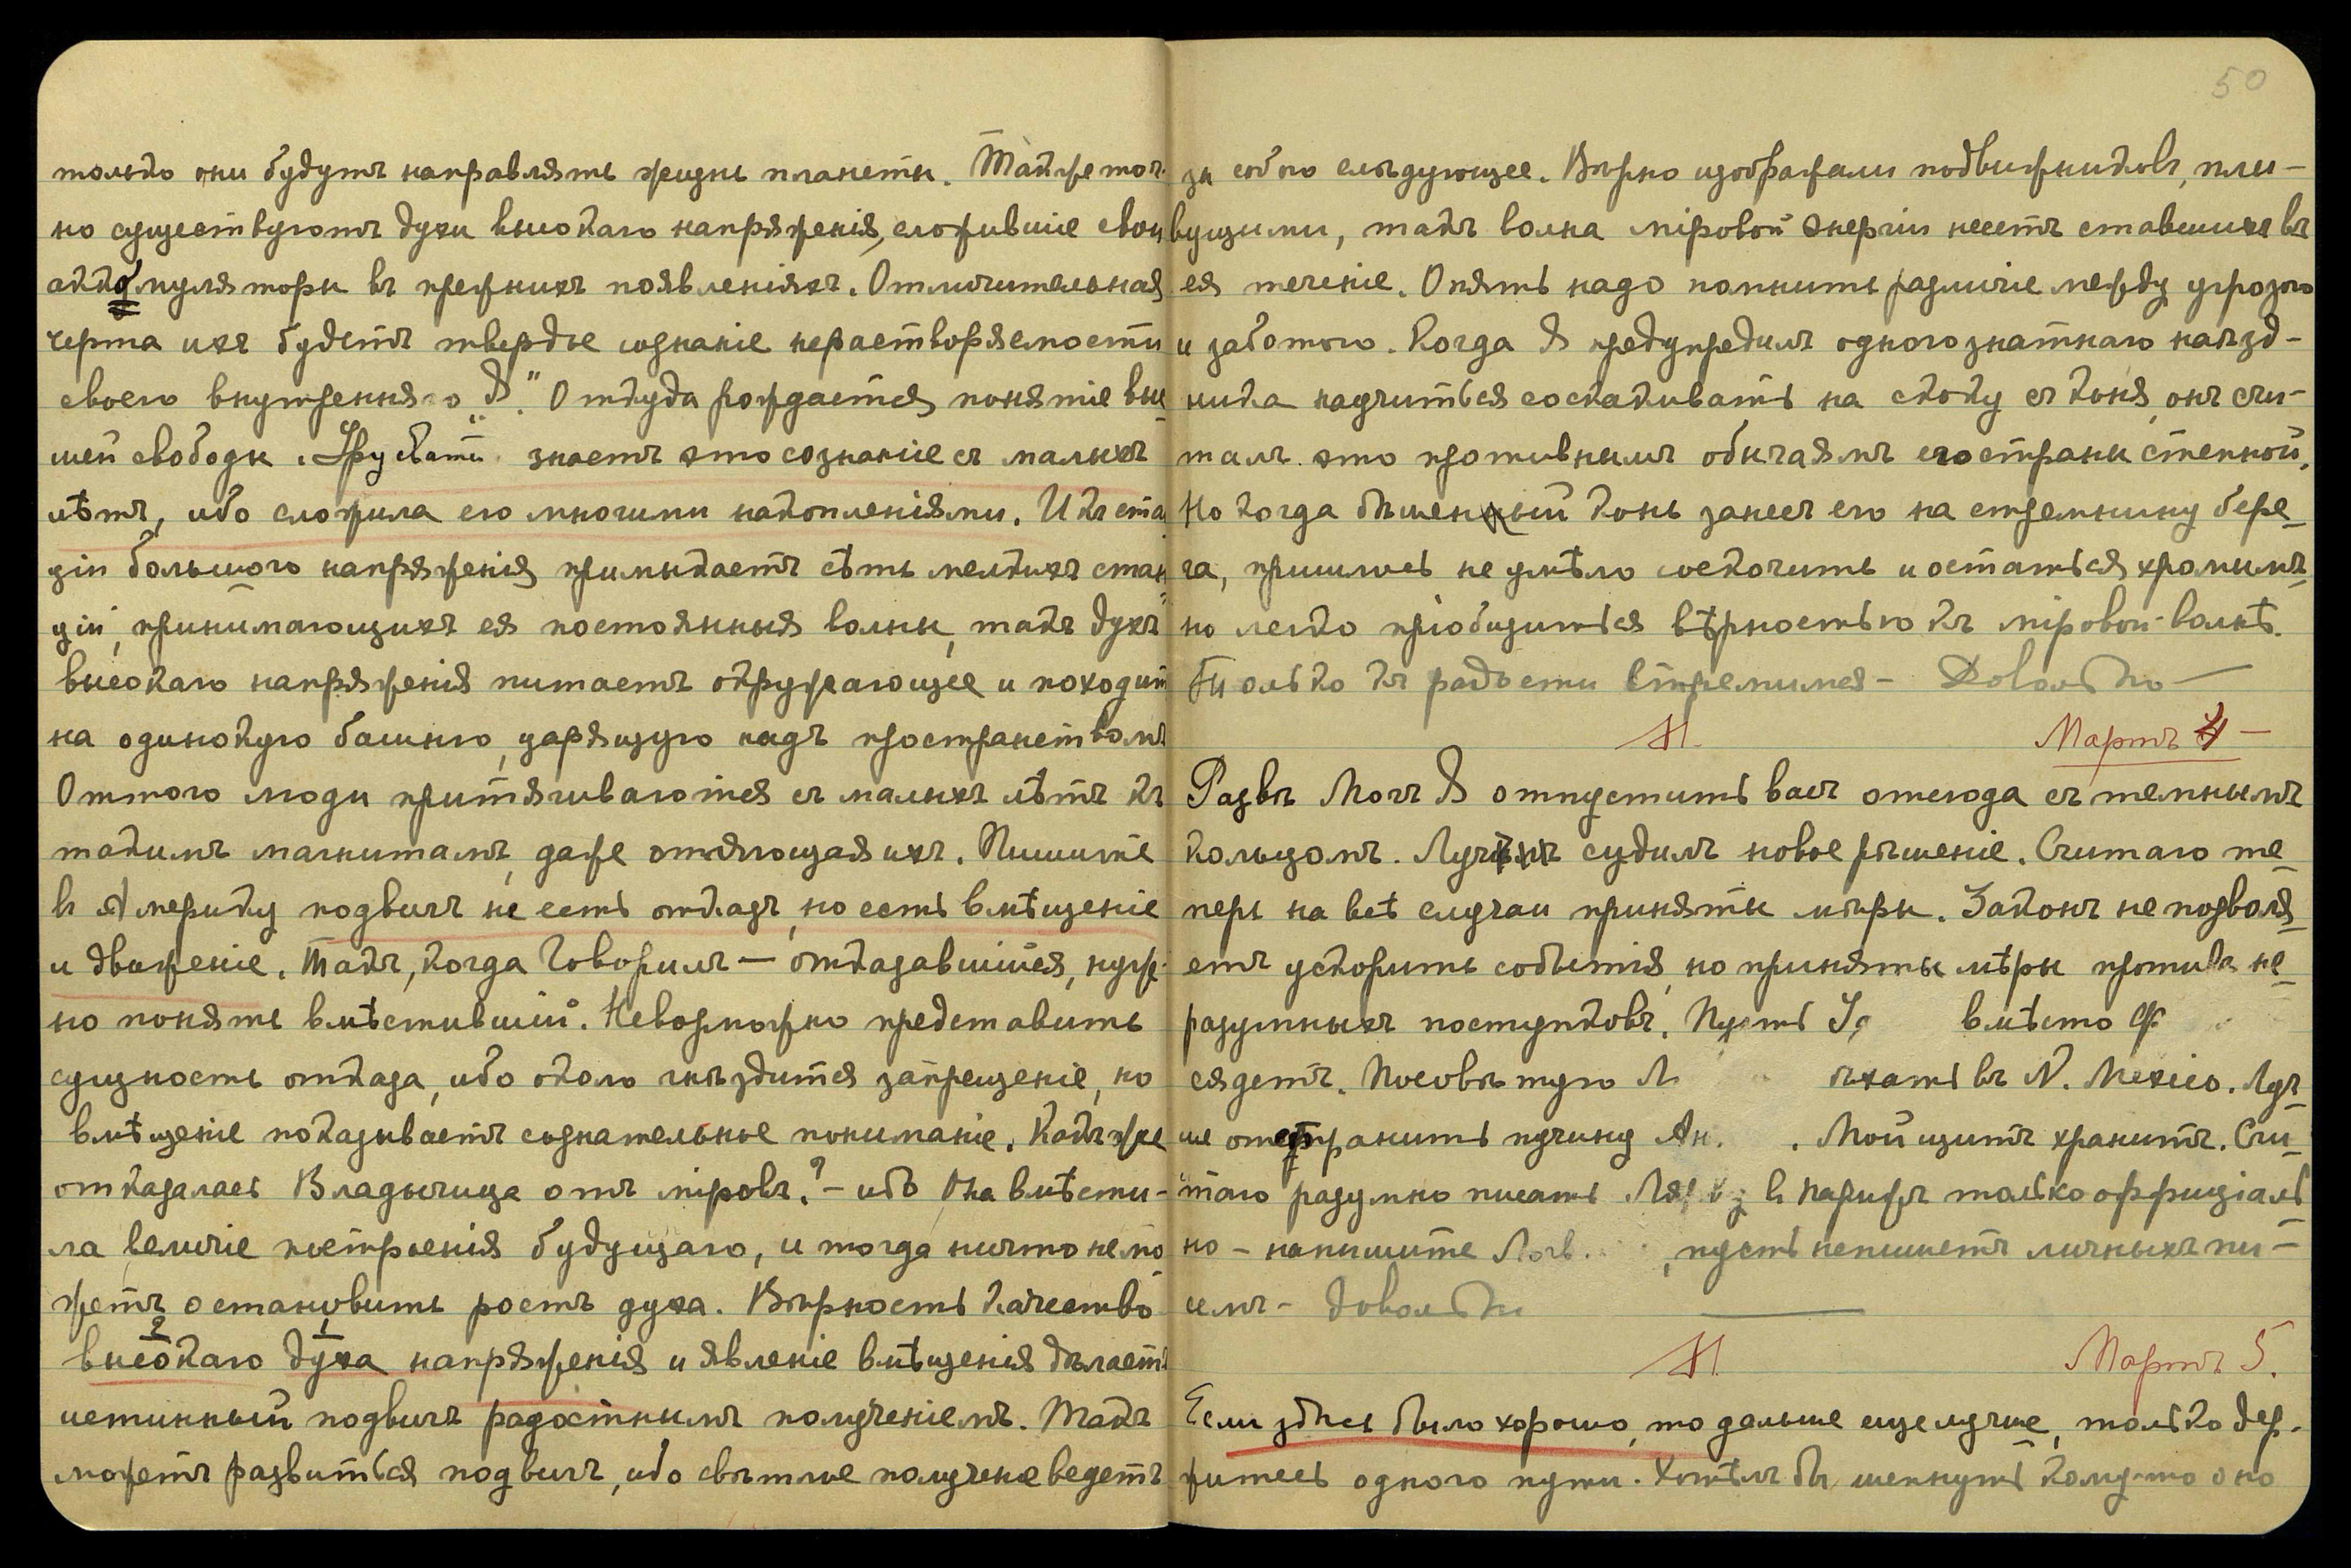 только они будутъ направлять жизнь планеты. Также точ-
но существуютъ духи высокаго напряженія, сложившіе свои
аккумуляторы въ прежнихъ появленіяхъ. Отличительная
черта ихъ будетъ твердое сознаніе нерастворяемости
своего внутренняго „Я“. Откуда рождается понятіе выс-
шей свободы. Урусвати знаетъ это сознаніе съ малыхъ
лѣтъ, ибо сложила его многими накопленіями. Какъ ста
ціи большого напряженія примыкаетъ сѣть мелкихъ стан
цій, принимающихъ ея постоянныя волны, такъ духъ
высокаго напряженія питаетъ окружающее и походит
на одинокую башню, царящую надъ пространствомъ
Оттого люди притягиваются съ малыхъ лѣтъ къ
такимъ магнитамъ, даже отягощая ихъ. Пишите
въ Америку подвигъ не есть отказъ, но есть вмѣщеніе
и движеніе. Такъ, когда Говорилъ — отказавшійся, нуж-
но понять вмѣстившій. Невозможно представить
сущность отказа, ибо около гнѣздится запрещеніе, но
вмѣщеніе показываетъ сознательное пониманіе. Какъ же
отказалась Владычица отъ міровъ? – ибо Она вмѣсти-
ла величіе построенія будущаго, и тогда ничто не мо
жетъ остановить ростъ духа. Вѣрность качество
2 1
высокаго духа напряженія и явленіе вмѣщенія дѣлаетъ
истинный подвигъ радостнымъ полученіемъ. Такъ
можетъ развиться подвигъ, ибо свѣтлое полученіе ведетъ
50
за собою слѣдующее. Вѣрно изображали подвижниковъ, плы-
вущими, такъ волна міровой энергіи несетъ ставшихъ въ
ея теченіе. Опять надо помнить различіе между угрозою
и заботою. Когда Я предупредилъ одного знатнаго наѣзд-
ника научиться соскакивать на скоку съ коня, онъ счи-
талъ это противнымъ обычаямъ его страны степной.
Но когда бѣшеный конь занесъ его на стремнину бере-
га, пришлось не умѣло соскочить и остаться хромымъ
но легко пріобщиться вѣрностью къ міровой волнѣ.
Только къ радости стремимся – Довольно —
М. Мартъ 4 —
Развѣ Могъ Я отпустить васъ отсюда съ темнымъ
кольцомъ. судилъ новое рѣшеніе. Считаю те-
перь на всѣ случаи приняты мѣры. Законъ не позволя-
етъ ускорить событія, но приняты мѣры противъ не-
разумныхъ поступковъ. Пусть вмѣсто Ф
сядетъ. Посовѣтую Л ѣхать въ N. Mexico. Луч-
ше отстранить пучину Ан. . Мой щитъ хранитъ. Счи-
таю разумно писать въ Парижъ только оффиціаль
но – напишите Логв. , пусть не пишетъ личныхъ пи-
семъ – Довольно —
М. Мартъ 5.
Если здѣсь было хорошо, то дальше еще лучше, только дер-
житесь одного пути. Хотѣлъ бы шепнуть кому-то о но